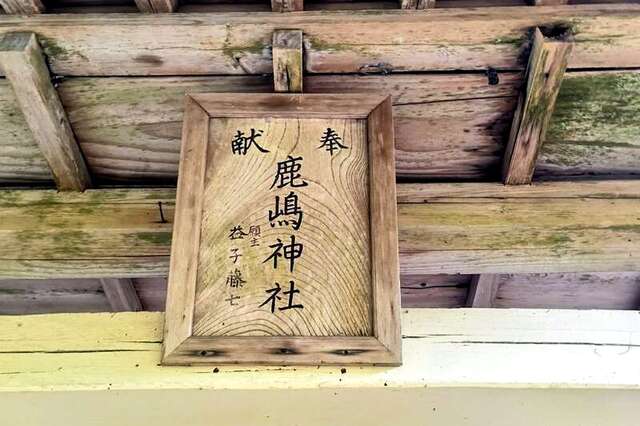 奉献
鹿嶋神社
願主
益子藤七